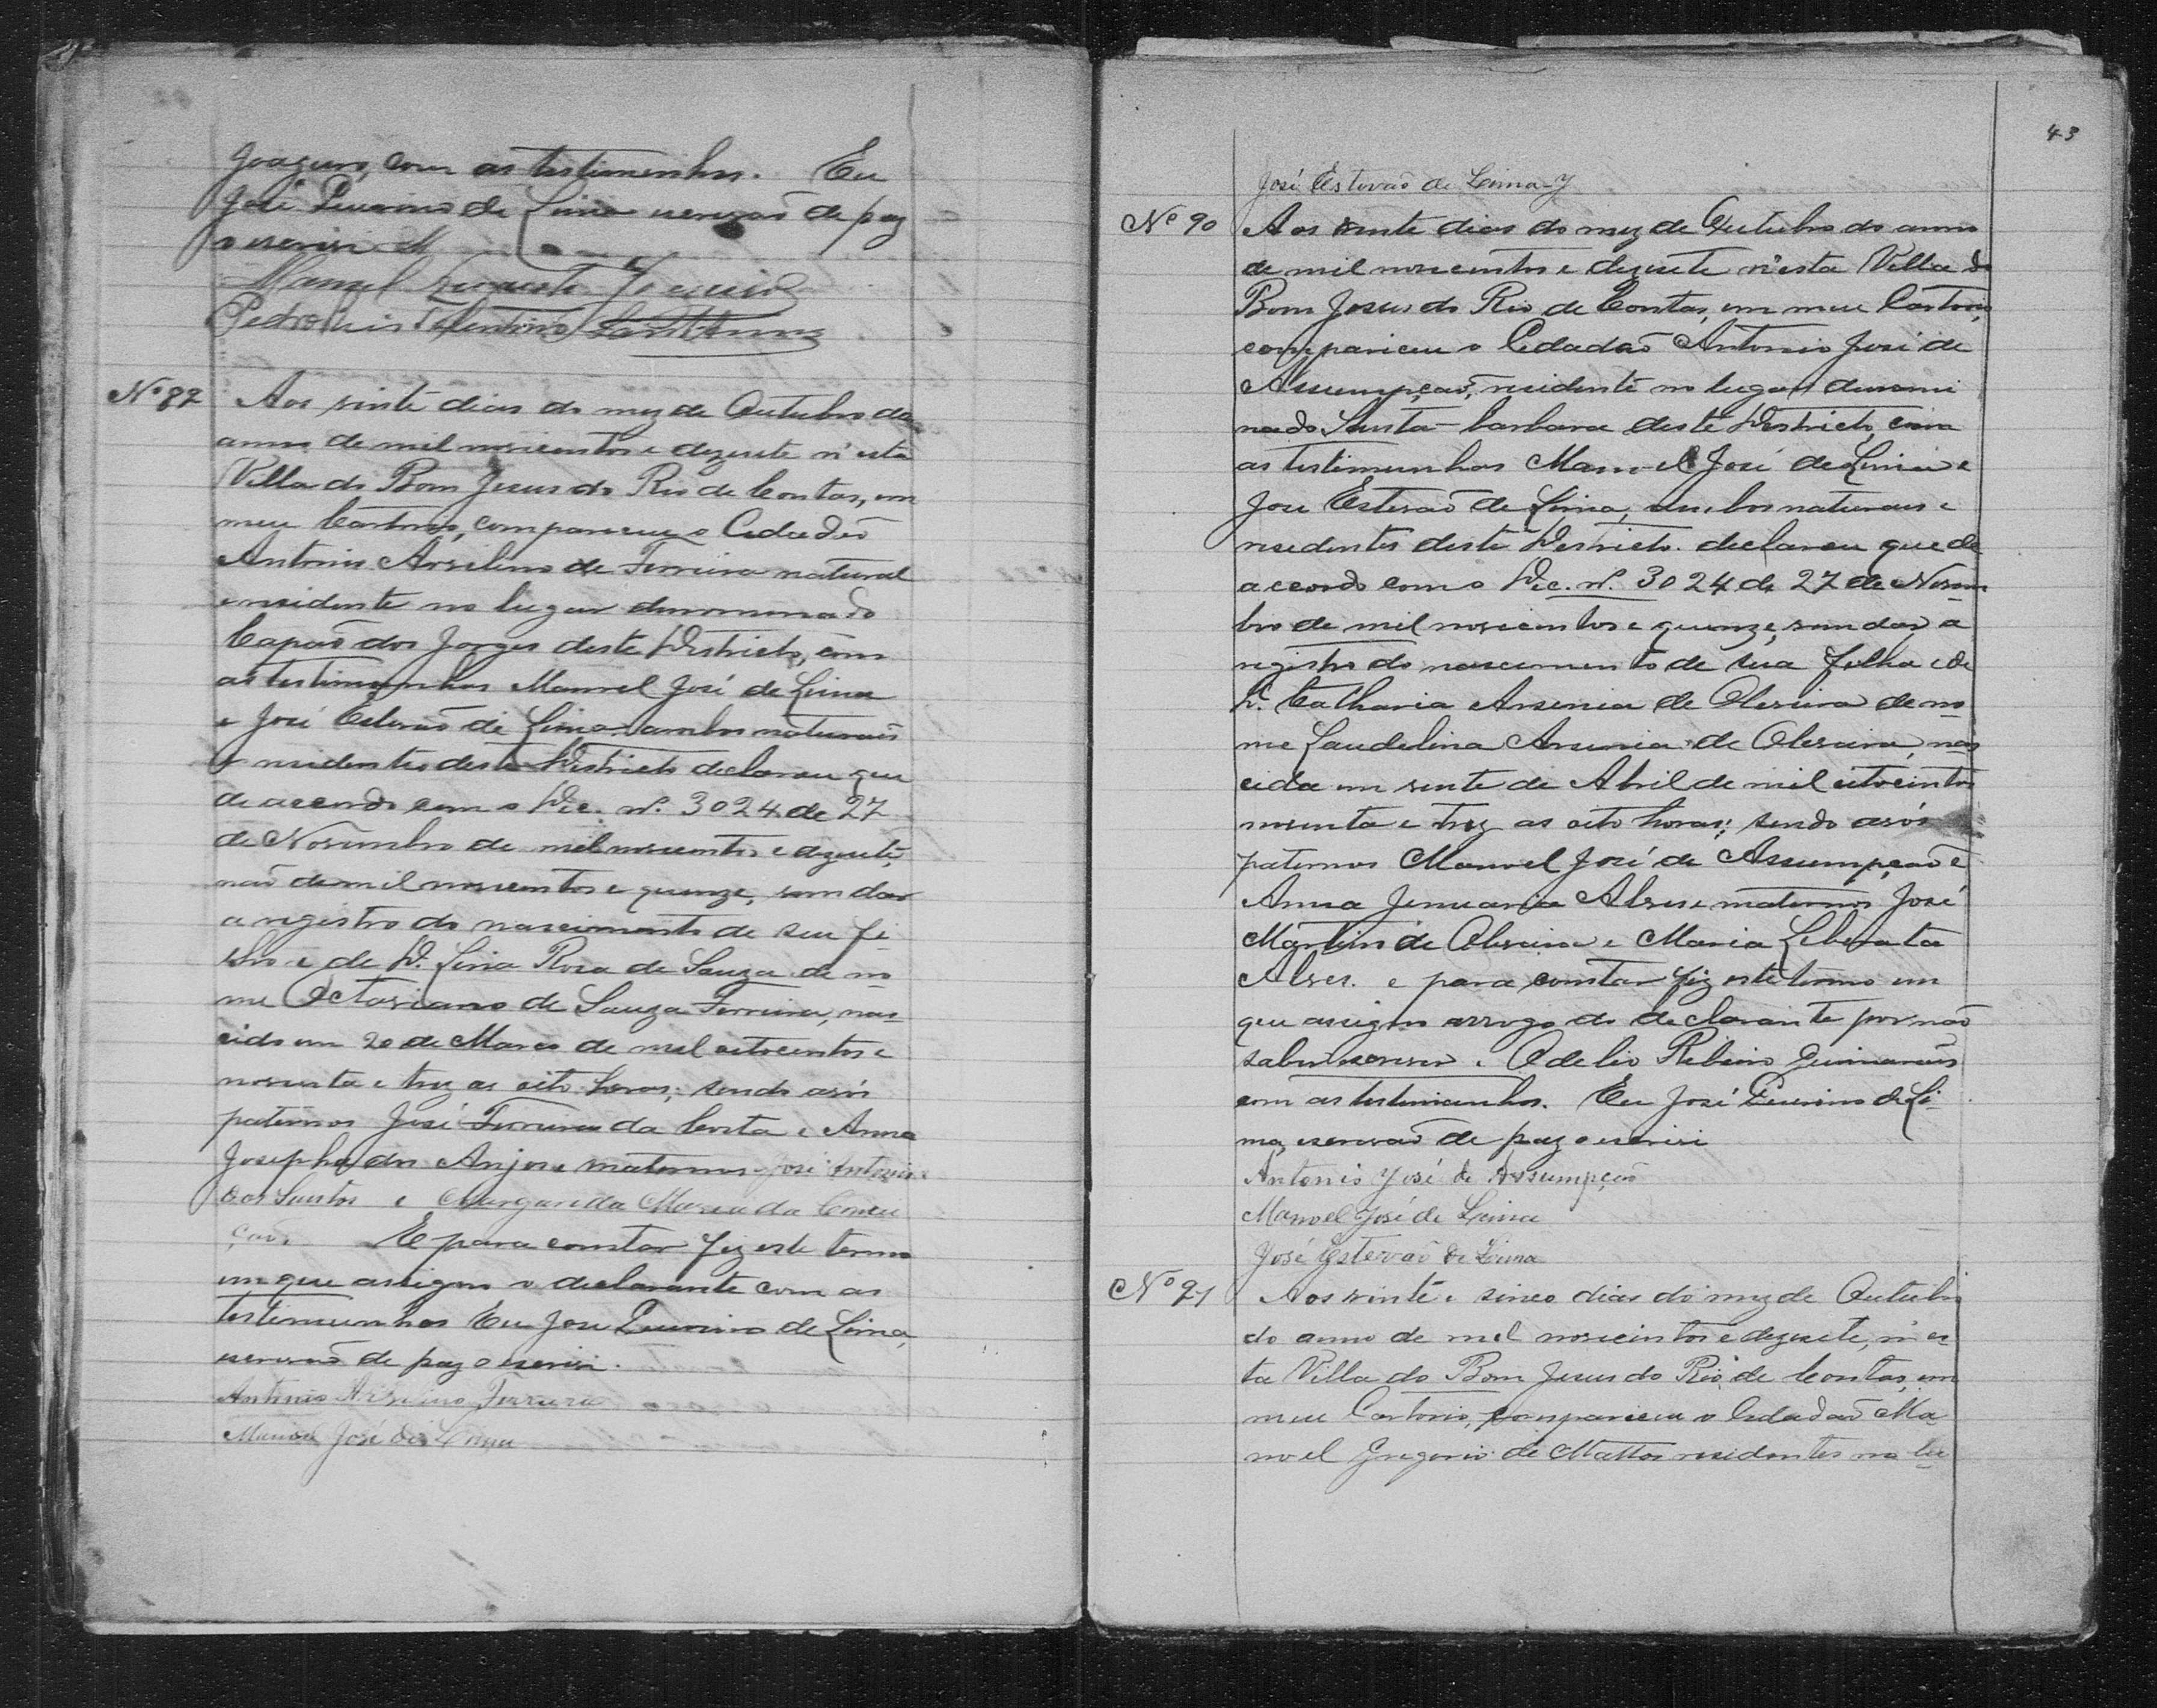 Joaquim, com as testimunhas. Eu
José Quirino de Lima escrivaõ de paz
o escrivi
Manoel Augusto
Pedro Luis Tolentino Sant'Anna
Nº 82
Aos vinte dias do mez de Outubro do
anno de mil novicentos e dezesete n'esta
Villa do Bom Jesus do Rio de Contas, em
meu Cartorio, compareceu o Cidadão
Antonio Avelino de Ferreira natural
e residente no lugar denominado
Capaõ dos Jorges deste Districto, com
as testimunhas Manoel José de Lima
e José Estevaõ de Lima ambos naturais
e residentes deste Districto declarou que
de accordo com o Dec. nº. 3024 de 27
de Novembro de mil novicentos e dezesete,
naõ de mil novicentos e quinze, vem dar
a registro do nascimento de seu fi-
lho e de D. Liria Rosa de Souza de no-
me Octaviano de Souza Ferreira, nas-
cido em 20 de Março de mil oitocentos e
noventa e trez as oito horas; sendo avós
paternos José Ferreira da Costa e Anna
Josepha dos Anjos e maternos José Antonio
dos Santos e Margarida Maria da Concei
çaõ. E para constar fiz este termo
em que assigna o declarante com as
testimunhas Eu José Quirino de Lima,
escrivaõ de paz o escrivi.
Antonio Avelino Ferreira
Manoel José de Lima
43
José Estevaõ de Lima
Nº 90
Aos vinte dias do mez de Outubro do anno
de mil novicentos e dezesete n'esta Villa do
Bom Jesus do Rio de Contas, em meu Cartorio,
compariceu o Cidadaõ Antonio José de
Assumpçaõ, residente no lugar denomi
nado Santa-barbara deste Districto, com
as testimunhas Manoel José de Lima e
José Estevaõ de Lima, ambos naturais e
residentes deste Districto. declarou que de
accordo com o Dec. nº. 3024 de 27 de Novem
bro de mil novicentos e quinze, vem dar a
registro do nascimento de sua filha e de
D. Catharia Arsenia de Oliveira de no-
me Laudelina Arsenia de Oliveira, nas
cida em vinte de Abril de mil oitocentos
noventa e trez as oito horas; sendo avós
paternos Manoel José de Assumpçaõ e
Anna Jenuaria Alves e maternos José
Martins de Oliveira e Maria Liberata
Alves. e para constar fiz este termo em
que assigna arrogo do declarante por naõ
saber escrever e Odelio Ribeiro Guimarães
com as testimunhas. Eu José Quirino de Li-
ma, escrivaõ de paz o escrivi
Antonio José de Assumpçaõ
Manoel José de Lima
José Estevaõ de Lima
Nº 91
Aos vinte e sinco dias do mez de Outubro
do anno de mil novicentos e dezesete, n'es-
ta Villa do Bom Jesus do Rio de Contas, em
meu Cartorio, compariceu o Cidadaõ Ma-
noel Gregorio de Mattos residentes no lu-